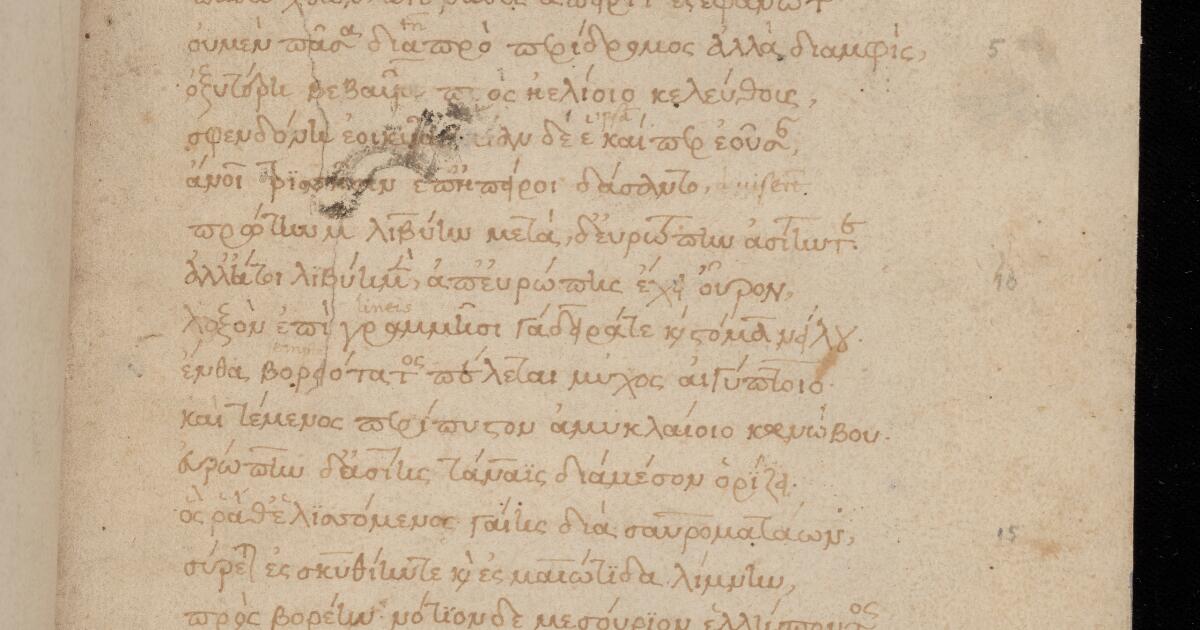 οὐ μὲν πᾶσα διαπρὸ περίδρομος ἀλλὰ διαμφὶς, 5
ὀξυτέρη βεβαυῖα πρὸς ἠελίοιο κελεύθοις,
σφενδόνη ἐοικυῖα μίαν δέ ἑ καί περ ἐοῦσαν,
ἄνθρωποι τρισσῇσιν ἐπ᾽ ἠπείροι δάσαντο,
πρώτην μὲν λιβύην μετὰ, δ᾽ εὐρώπην ἀσίην τε.
ἀλλ᾽ ἤτοι λιβύη μὲν, ἀπ᾽ εὐρώπης ἔχει οὖρον, 10
lineis
λοξὸν ἐπὶ γραμμῇσι γάδειρά τε καὶ στόμα νείλου.
ἔνθα βορειότατος πέλεται μυχὸς αἰγύπτοιο.
καὶ τέμενος περίπυστον ἀμυκλαίοιο κανώβου.
εὐρώπην δ᾽ ἀσίης τάναϊς διὰ μέσον ὁρίζει.
ὅς ῥά θ᾽ ἑλισσόμενος γαίης διὰ σαυροματάων, 15
σύρετ᾽ ἐς σκυθίην τε καὶ ἐς μαιώτιδα λίμνην,
πρὸς βορέην. νότιον δὲ μεσούριον ἑλλήσποντος